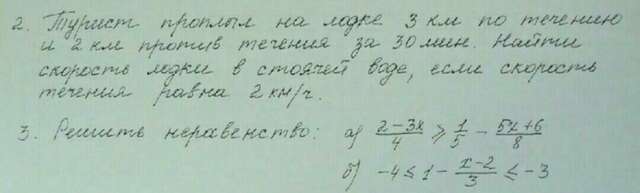 2. Турист проплыл на лодке 3 км по течению
и 2 км против течения за 30 мин. Найти
скорость лодки в стоячей воде, если скорость
течения равна 2 км/ч.
3. Решить неравенство: а) (2-3x)/4 ⩾ 1/5 - (5x+6)/8
б) -4 ≤ 1 - (x-2)/3 ≤ -3